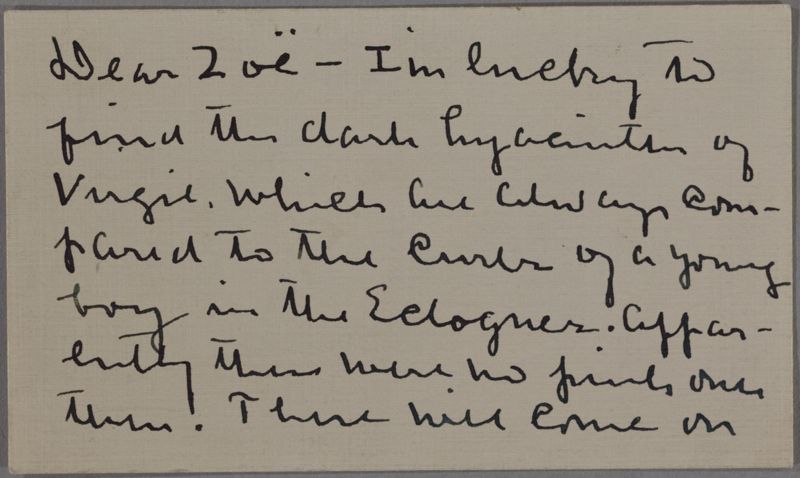 Dear Zoë – I'm lucky to
find the dark hyacinths of
Virgil. Which he always com-
pared to the curls of a young
boy in the Eclogues. Appar-
ently there were no pink ones
then. These will come on